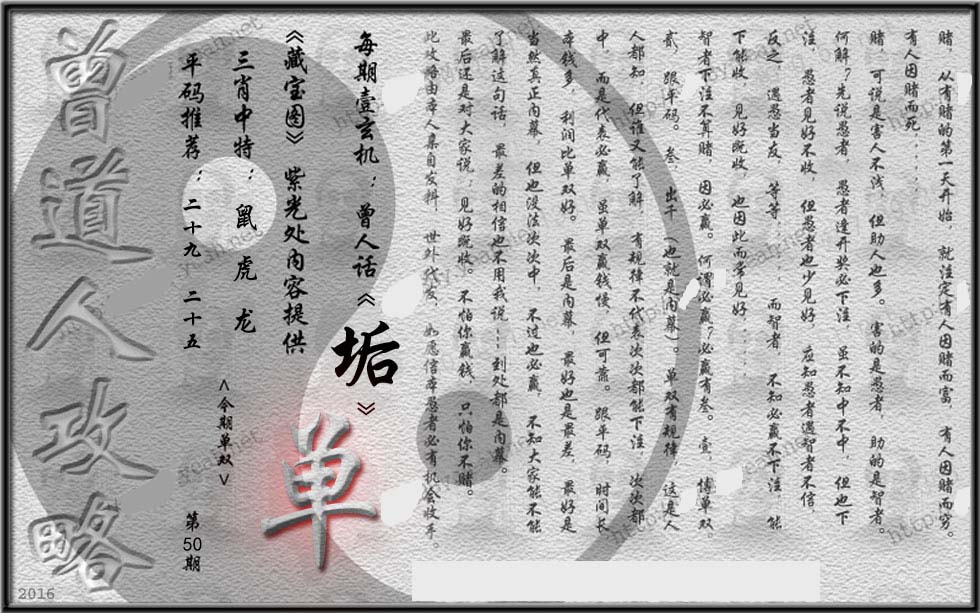 赌，从有赌的第一天开始，就注定有人因赌而富，有人因赌而穷。
有人因赌而死．．．．．．
赌，可说是害人不浅，但助人也多。害的是愚者，助的是智者。
何解？先说愚者，愚者逢开奖必下注，虽不知中不中，但也下
注，愚者见好不收，但愚者也少见好，应知愚者遇智者不信，
反之，遇愚当友，等等．．．．．而智者，不知必赢不下注，能
下能收，见好既收，也因此而常见好．．．．．．
智者下注不算赌，因必赢。何谓必赢？必赢有叁。壹，博单双。
贰，跟平码。叁，出千（也就是内幕）。单双有规律，这是人
人都知，但谁又能了解，有规律不代表次次都能下注，次次都
中，而是代表必赢，虽单双赢钱慢，但可靠。跟平码，时间长
本钱多，利润比单双好。最后是内幕，最好也是最差，最好是
当然真正内幕，但也没法次次中，不过也必赢，不知大家能不能
了解这句话，最差的相信也不用我说……到处都是内幕。
最后还是对大家说：见好既收。不怕你赢钱，只怕你不赌。
此攻略由本人集自发料，世外代友，如愿信本愚者必有机会收手。
每期壹玄机：曾人话《垢》
《藏宝图》紫光处内容提供
三肖中特：鼠 虎 龙
平码推荐：二十九 二十五
<今期单双>
单
第50期
曾道人攻略
2016
yeah.net